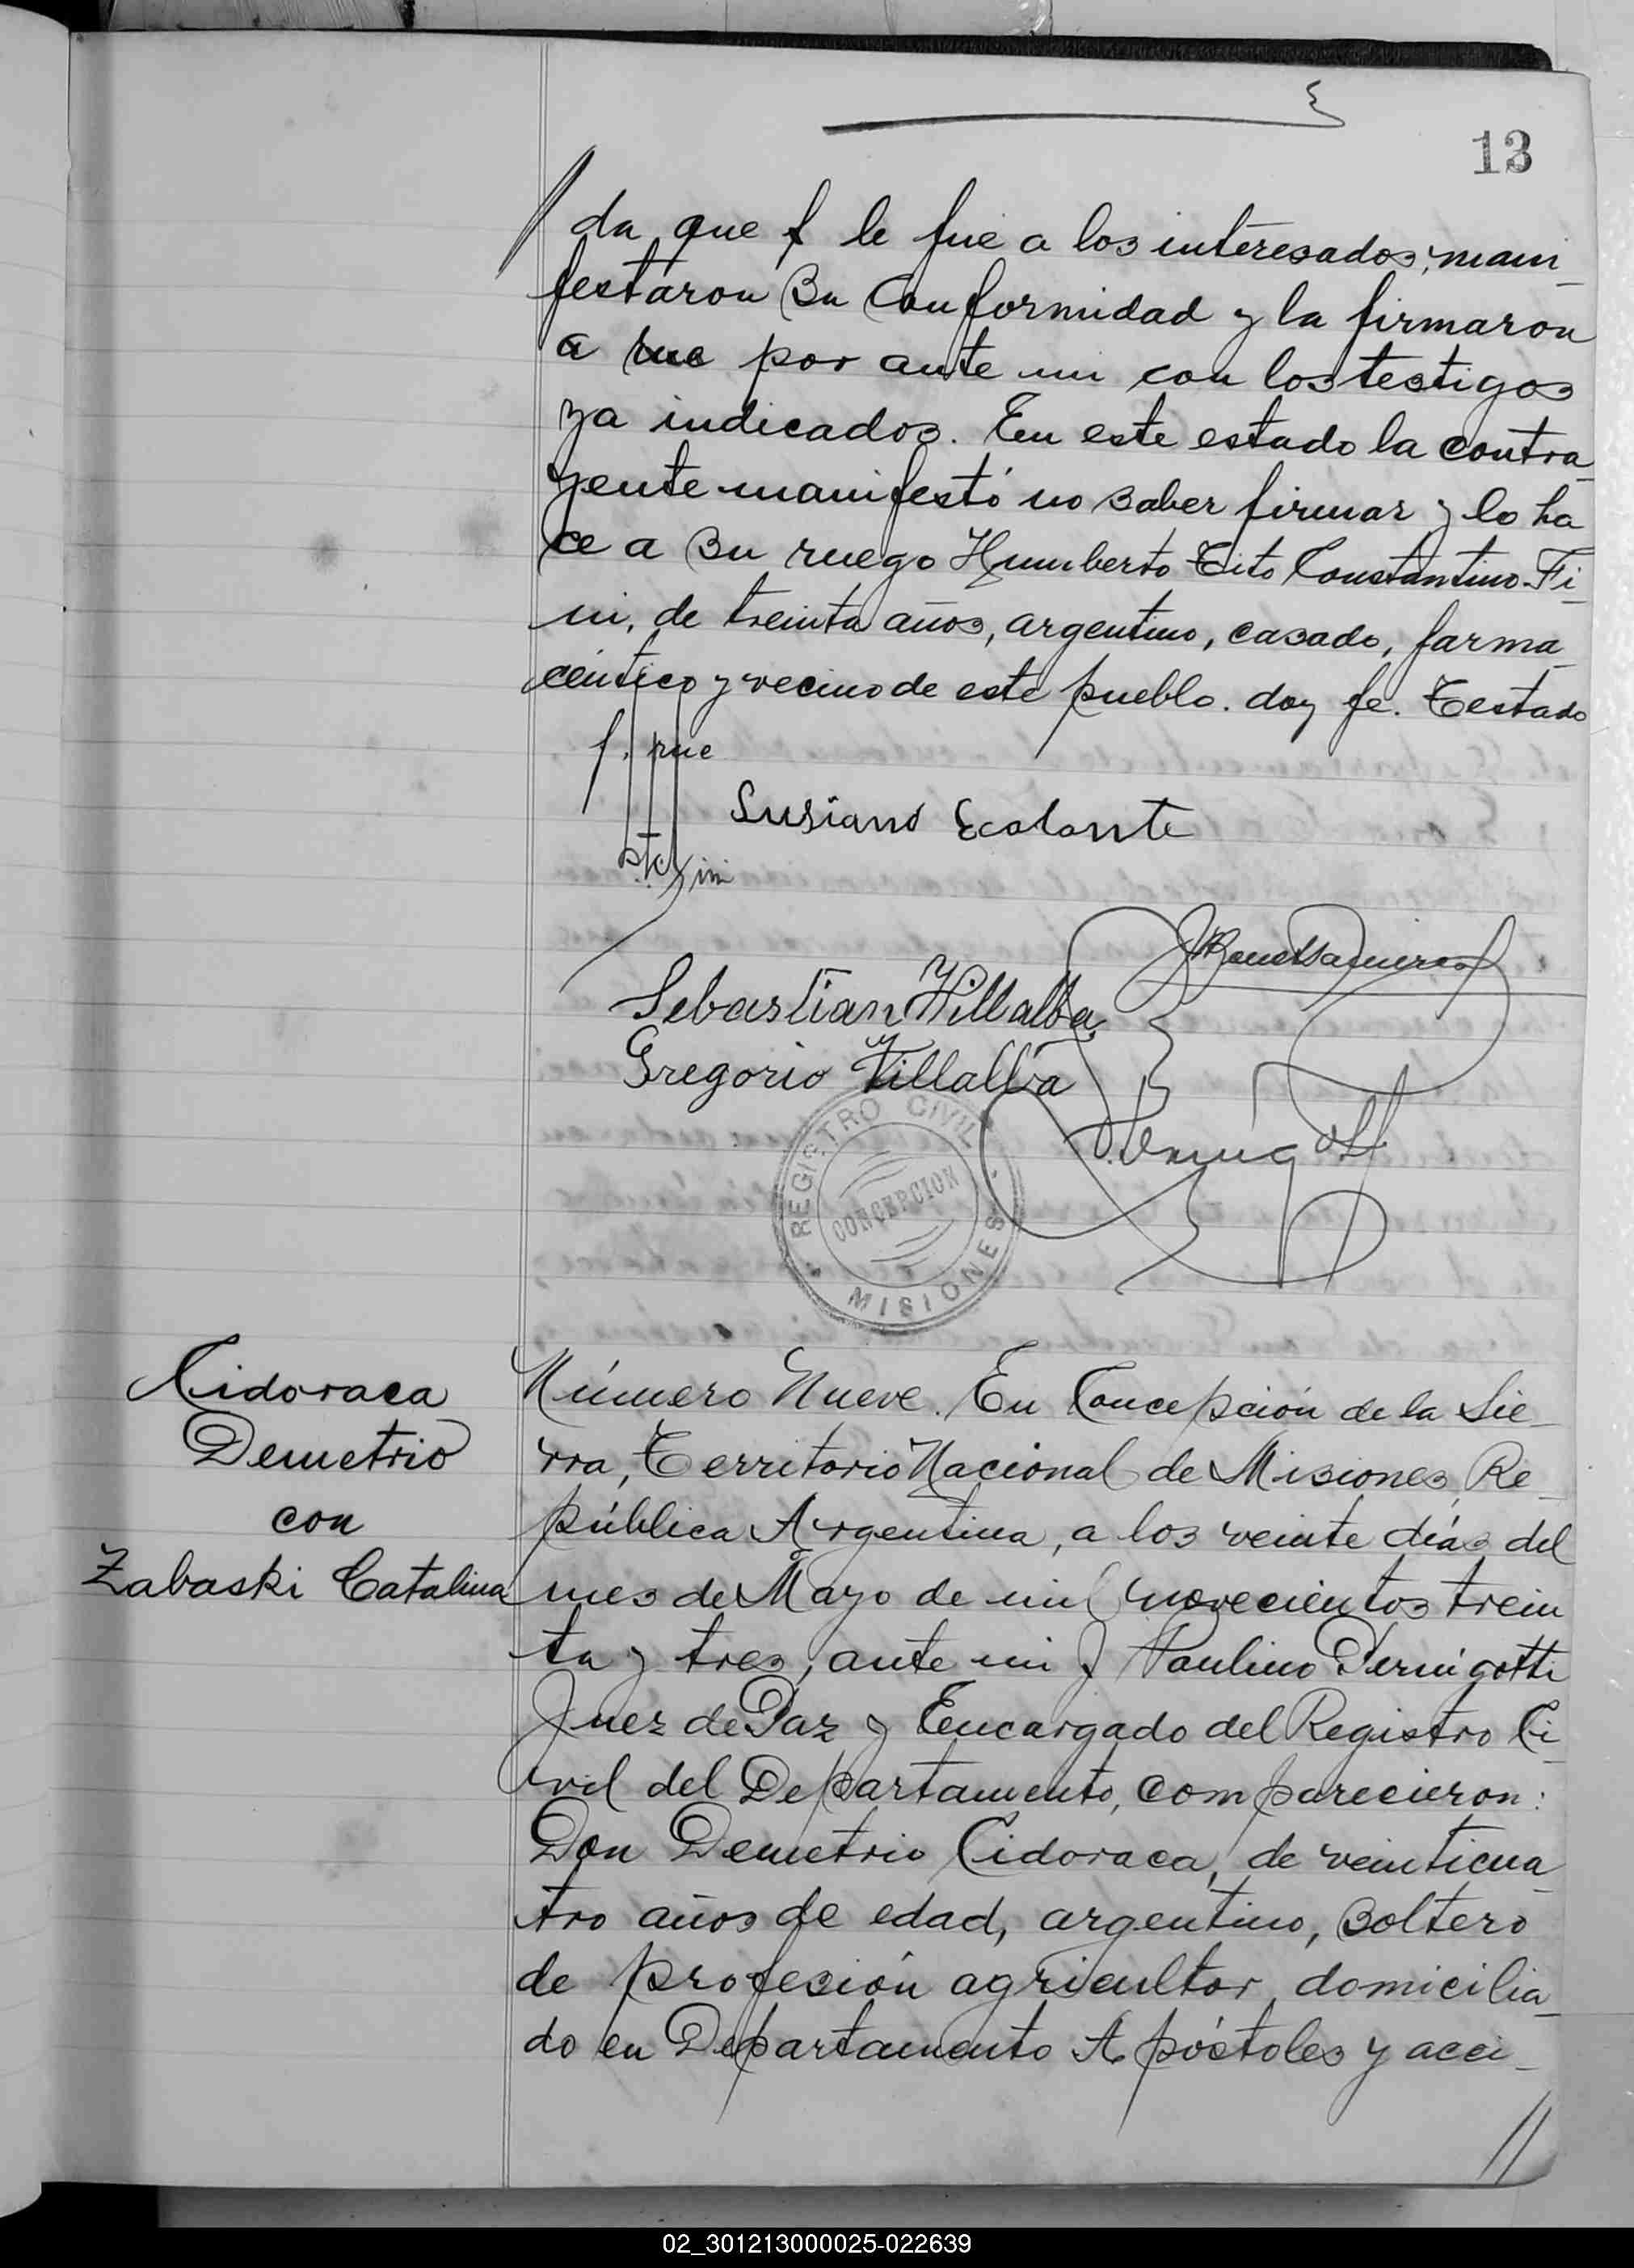 13
da que f le fue a los interesados, mani
festaron su conformidad y la firmaron
a rue por ante mi con los testigos
ya indicados. En este estado la contra
yente manifestó no saber firmar y lo ha
ce a su ruego Humberto Tito Constantino Fi
ni, de treinta años, argentino, casado, farma
céutico y vecino de este pueblo. doy fe. Testado
f. rue
Lusiano Ecalante
Sebastian Villalba
Gregorio Villalba
REGISTRO CIVIL
CONCEPCION
MISIONES
Cidoraca
Demetrio
con
Zabaski Catalina
Número Nueve. En Concepción de la Sie
rra, Territorio Nacional de Misiones, Re
pública Argentina, a los veinte días del
mes de Mayo de mil novecientos trein
ta y tres, ante mi J Paulino Pernigotti
Juez de Paz y Encargado del Registro Ci
vil del Departamento, comparecieron:
Don Demetrio Cidoraca, de veinticua
tro años de edad, argentino, soltero
de profesión agricultor, domicilia
do en Departamento Apóstoles y acci
02_301213000025-022639